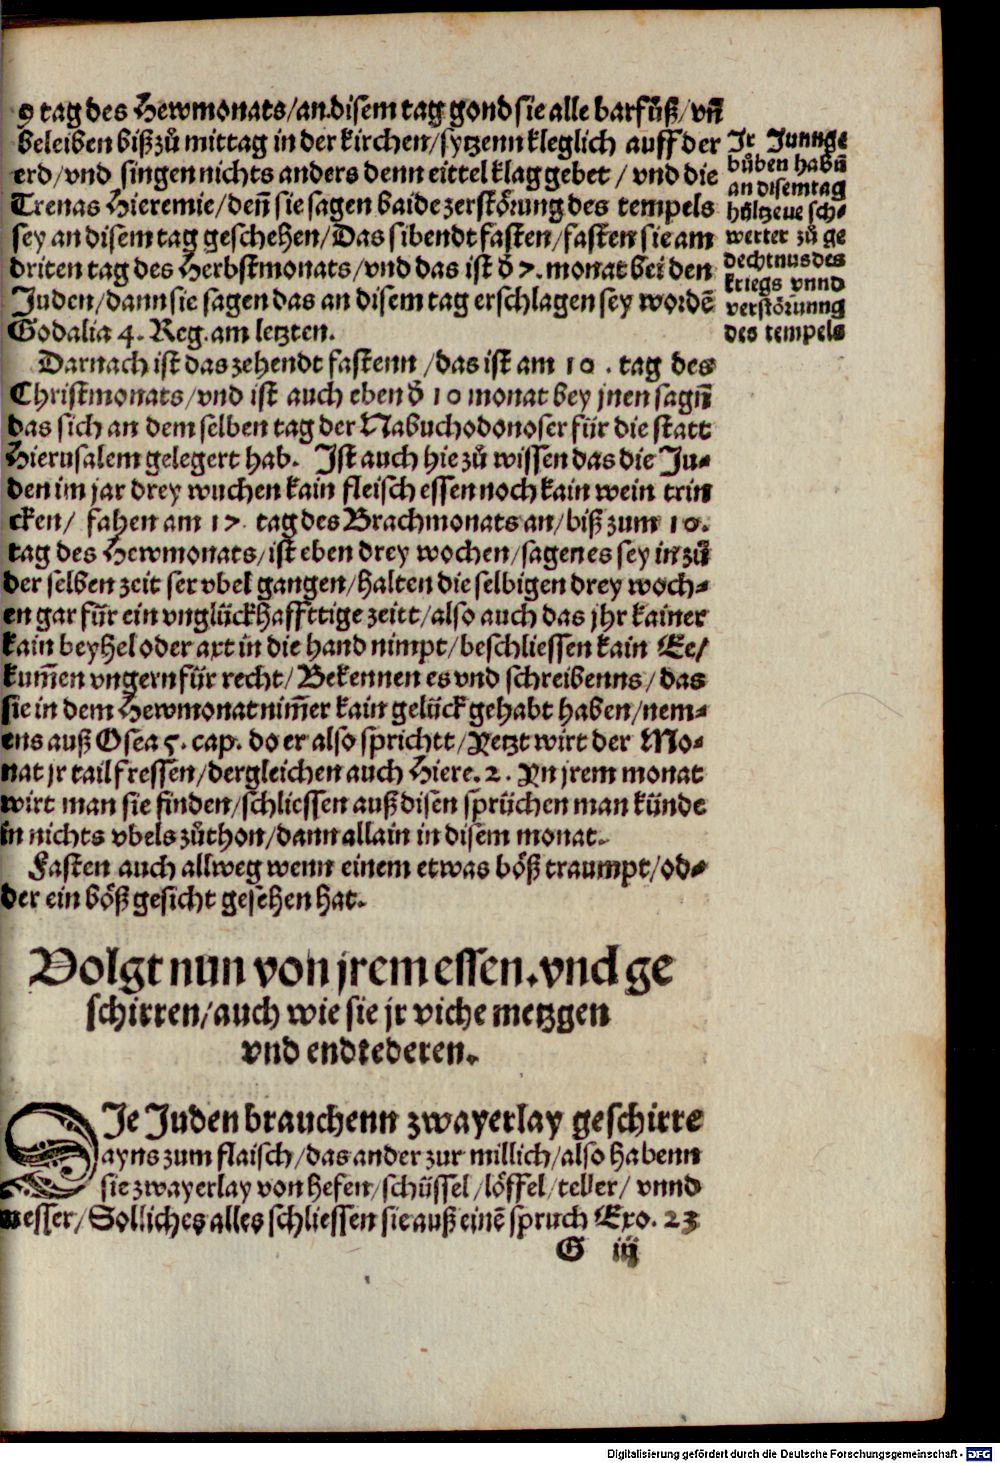 9 tag des Hewmonats/an disem tag gond sie alle barfůß/vñ
beleiben biß zů mittag in der kirchen/sytzenn kleglich auff der
erd/vnd singen nichts anders denn eittel klag gebet / vnd die
Trenas Hieremie/deñ sie sagen baide zerstörung des tempels
sey an disem tag geschehen/Das sibendt fasten/fasten sie am
driten tag des Herbstmonats/vnd das ist ð 7. monat bei den
Juden/dann sie sagen das an disem tag erschlagen sey wordẽ
Godalia 4. Reg. am letzten.
Jr Junnge
bůben habñ
an disem tag
hőltzene sch⸗
werter zů ge
dechtnus des
kriegs vnnd
verstörunng
des tempels
Darnach ist das zehendt fastenn /das ist am 10 . tag des
Christmonats/vnd ist auch eben ð 10 monat bey jnen sagñ
das sich an dem selben tag der Nabuchodonoser für die statt
Hierusalem gelegert hab. Ist auch hie zů wissen das die Ju⸗
den im jar drey wuchen kain fleisch essen noch kain wein trin
cken/ fahen am 17 tag des Brachmonats an/biß zum 10.
tag des Hewmonats/ist eben drey wochen/sagen es sey in zů
der selben zeit ser vbel gangen/halten die selbigen drey woch⸗
en gar für ein vnglückhaffttige zeitt/also auch das jhr kainer
kain beyhel oder axt in die hand nimpt/beschliessen kain Ee/
kum̃en vngern für recht/ Bekennen es vnd schreibenns/ das
sie in dem Hewmonat nim̃er kain gelück gehabt haben/nem⸗
ens auß Osea 5. cap. do er also sprichtt/Yetzt wirt der Mo⸗
nat jr tail fressen/dergleichen auch Hiere. 2. Yn jrem monat
wirt man sie finden/schliessen auß disen sprüchen man künde
in nichts vbels zůthon/dann allain in disem monat.
Fasten auch allweg wenn einem etwas böß traumpt/od⸗
der ein böß gesicht gesehen hat.
Volgt nun von jrem essen.vnd ge
schirren/auch wie sie jr viche metzgen
vnd endtederen.
DJe Juden brauchenn zwayerlay geschirre
ayns zum flaisch/das ander zur millich/also habenn
sie zwayerlay von hefen/schüssel/löffel/teller/ vnnd
messer/Solliches alles schliessen sie auß einẽ spruch Exo. 23
G iij
Digitalisierung gefördert durch die Deutsche Forschungsgemeinschaft - DFG